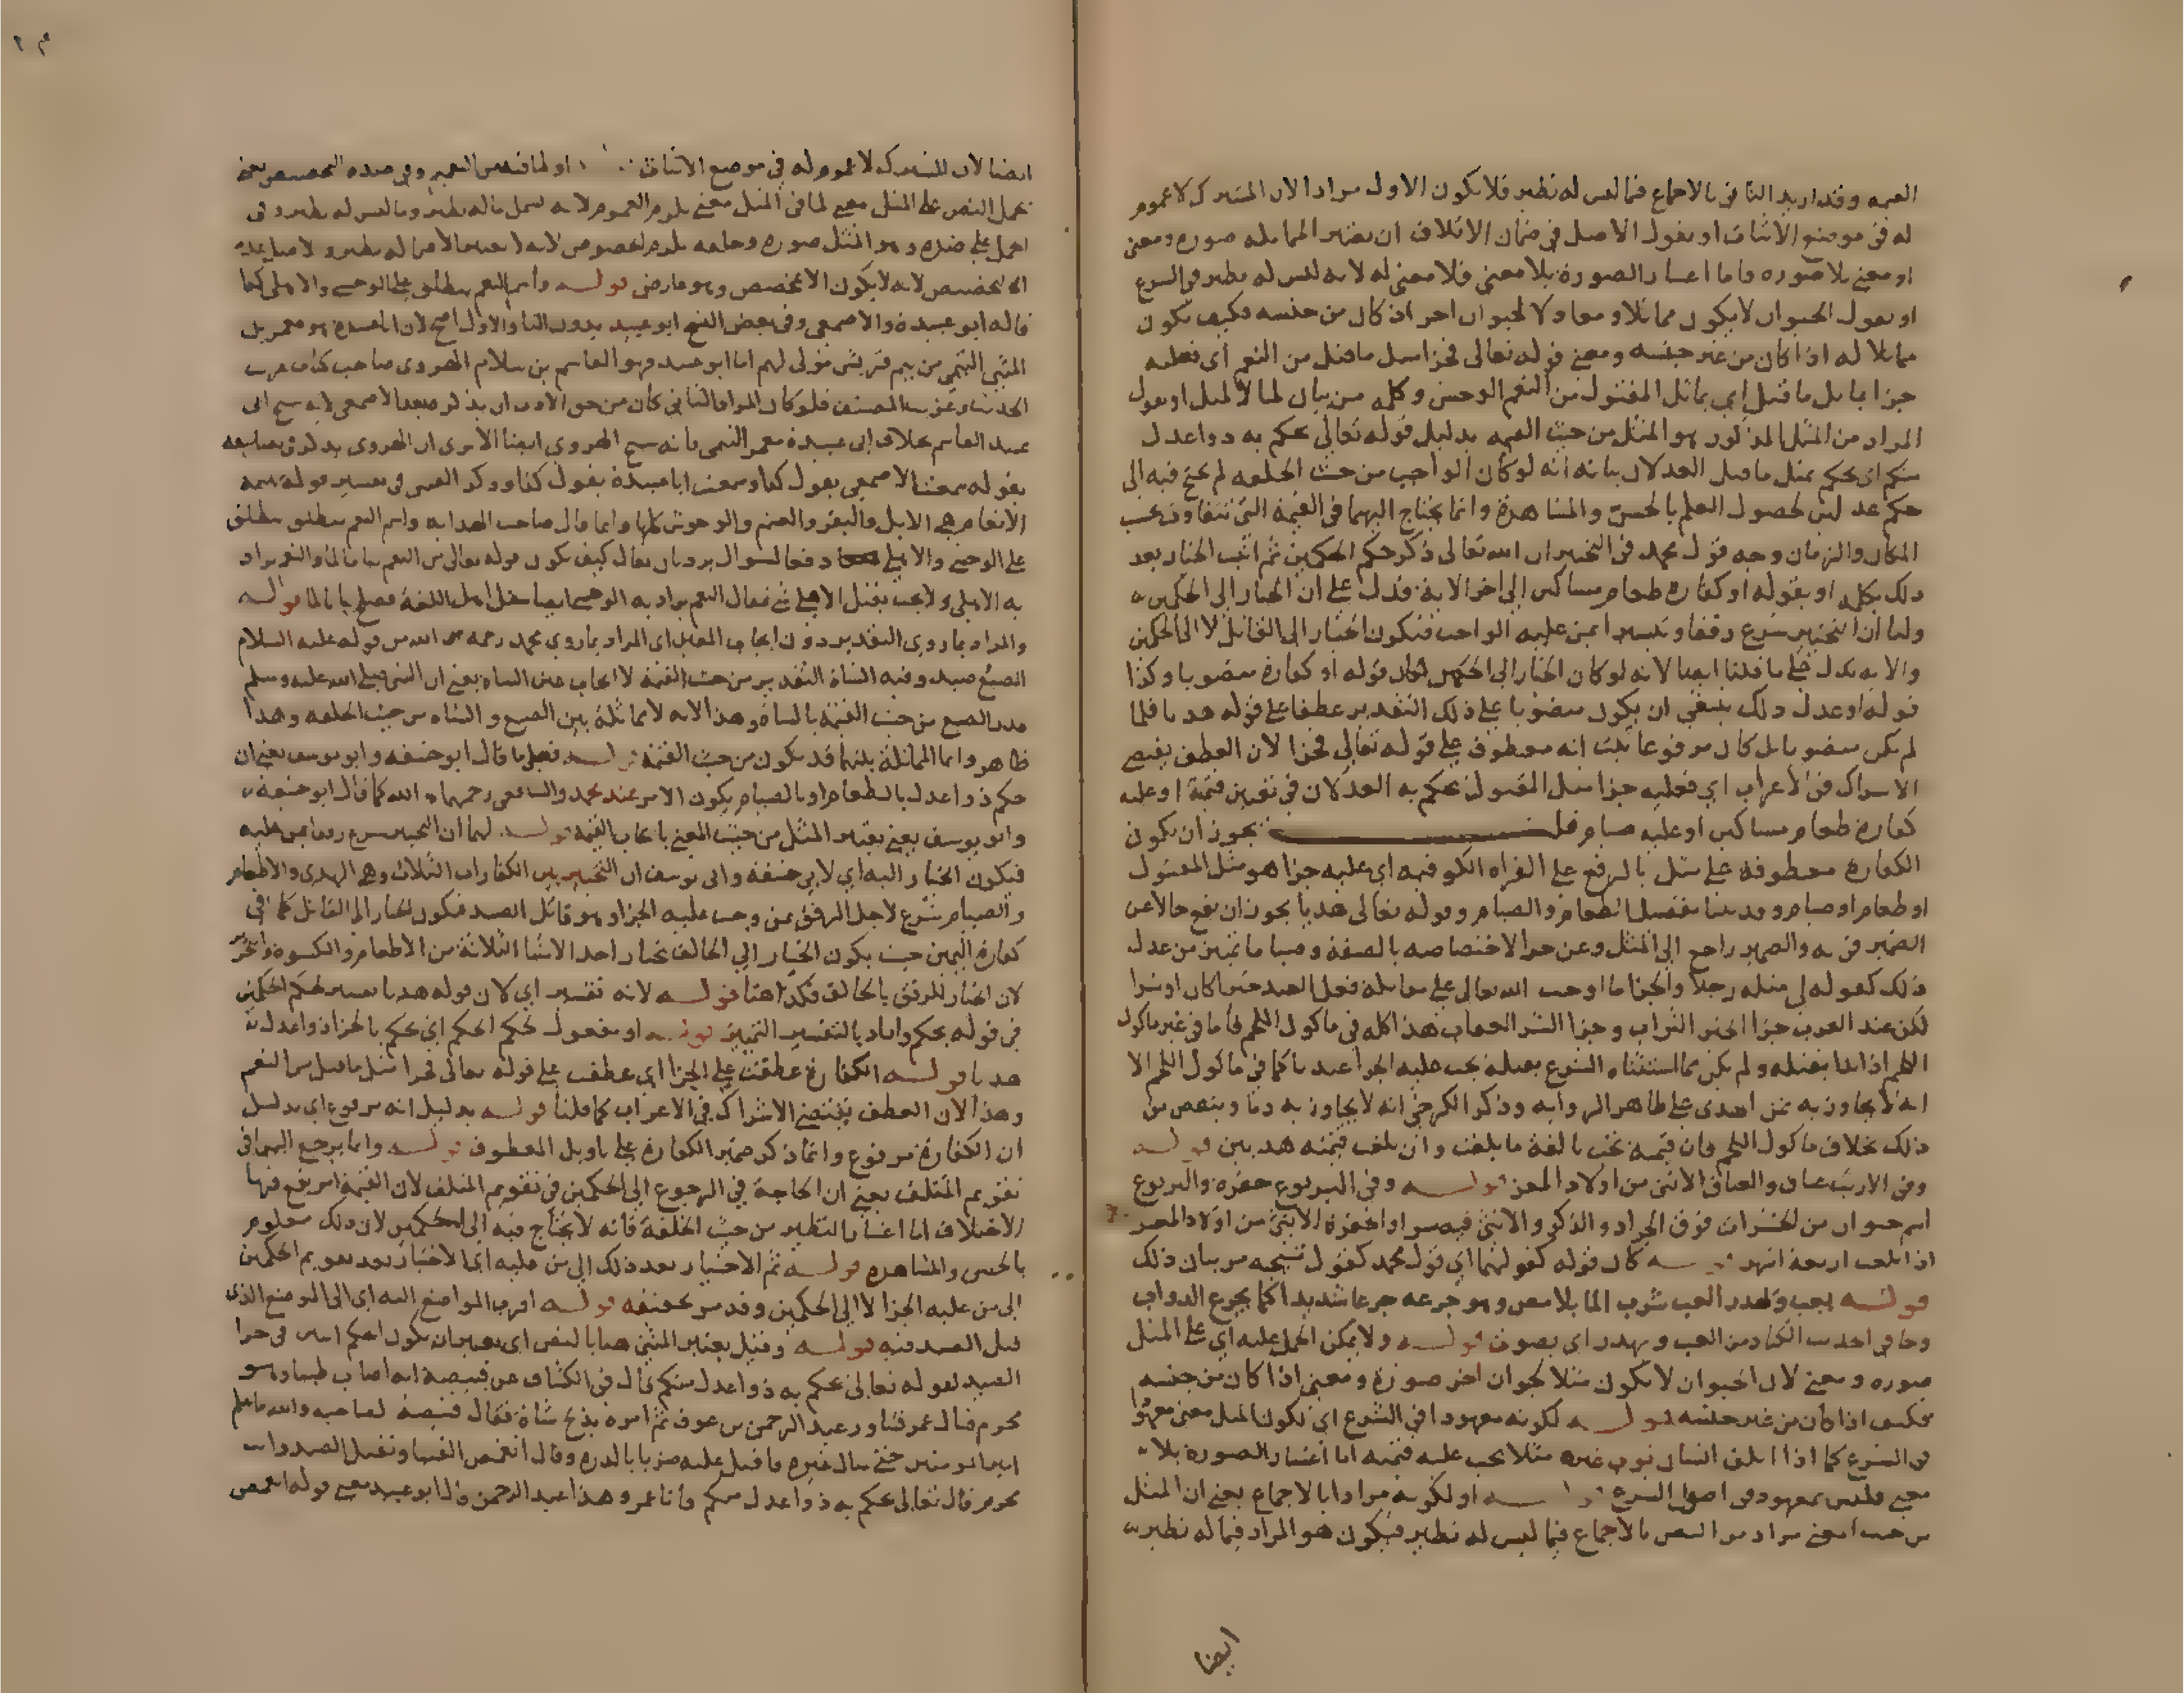 القيمة وقد اريد الثاني بالاجماع فيما ليس له نظير فلا يكون الاول مرادا لان المشترك لا عموم
له في موضع الاثبات او نقول الاصل في ضمان الاتلاف ان يعتبر المماثلة صورة ومعنى
او معنى بلا صورة فاما اعتبار الصورة بلا معنى فلا معنى له لانه ليس له نظير في الشرع
او نقول الحيوان لا يكون مماثلا ومعادلا لحيوان اخر اذ كان من جنسه فكيف يكون
مماثلا له اذا كان من غير جنسه ومعنى قوله تعالى فجزا مثل ما قتل من النعم اي فعليه
جزا يماثل ما قتل اي يماثل المقتول من النعم الوحش وكلمة من بيان لما لا لمثل او نقول
المراد من المثل المذكور هو المثل من حيث القيمة بدليل قوله تعالى يحكم به ذوا عدل
منكم اي يحكم بمثل ما قتل العدلان بيانه انه لو كان الواجب من حيث الخلقة لم يحتج فيه الى
حكم عدلين لحصول العلم بالحس والمشاهدة وانما يحتاج اليهما في القيمة التي تتفاوت بحسب
المكان والزمان وجه قول محمد في التخيير ان الله تعالى ذكر حكم الحكمين ثم اثبت الخيار بعد
ذلك بكلمة او بقوله او كفارة طعام مساكين الى اخر الاية فدل على ان الخيار الى الحكمين
ولنا ان التخيير شرع رفقا وتيسيرا بمن عليه الواجب فيكون الخيار الى القاتل لا الى الحكمين
والاية تدل على ما قلنا ايضا لانه لو كان الخيار الى الحكمين لكان قوله او كفارة منصوبا وكذا
قوله او عدل ذلك ينبغي ان يكون منصوبا على ذلك التقدير عطفا على قوله هديا فلما
لم يكن منصوبا بل كان مرفوعا ثبت انه معطوف على قوله تعالى فجزا لان العطف يقتضي
الاشراك في الاعراب اي فعليه جزا مثل المقتول يحكم به العدلان في تعيين قيمة او عليه
كفارة طعام مساكين او عليه صيام يجوز ان يكون
الكفارة معطوفة على مثل بالرفع على القراة الكوفية اي عليه جزا هو مثل المقتول
او طعام او صيام وقد بينا تفصيل الطعام والصيام وقوله تعالى هديا يجوز ان يقع حالا عن
الضمير في به والضمير راجع الى المثل وعن جزا لاختصاصه بالصفة وصياما تمييز من عدل
ذلك كقوله لي مثله رجلا والجزا ما اوجب الله تعالى على مقابلة فعل العبد خيرا كان او شرا
لكن عند العرب جزا الخير الثواب وجزا الشر العقاب هذا كله في ماكول اللحم فاما في غير ماكول
اللحم اذا ابتدا بقتله ولم يكن مما استثناه الشرع بقتله يجب عليه الجزا عندنا كما في ماكول اللحم الا
انه لا يجاوز به ثمن الهدي على ظاهر الرواية وذكر الكرخي انه لا يجاوز به دما وينقص من
ذلك بخلاف ماكول اللحم فان قيمته تجب بالغة ما بلغت وان بلغت قيمته هديين قوله
وفي الارنب عناق والعناق الانثى من اولاد المعز قوله وفي اليربوع جفرة واليربوع
اسم حيوان من الحشرات فوق الجراد والذكر والانثى فيه سوا والجفرة الانثى من اولاد المعز
اذا بلغت اربعة اشهر قوله كان قوله كقولهما اي قول محمد كقول شيخيه من بيان ذلك
قوله يعب ويهدر العب شرب الما بلا مص وهو جرعه جرعا شديدا كما يجرع الدواب
وجا في الحديث الكباد من العب ويهدر اي يصوت قوله ولا يمكن الحمل عليه اي على المثل
صورة ومعنى لان الحيوان لا يكون مثلا لحيوان اخر صورة ومعنى اذا كان من جنسه
فكيف اذا كان من غير جنسه قوله لكونه معهودا في الشرع اي لكون المثل معنى معهودا
في الشرع كما اذا اتلف انسان ثوب غيره مثلا يجب عليه قيمته اما اعتبار الصورة بلا
معنى فليس بمعهود في اصول الشرع قوله او لكونه مرادا بالاجماع يعني ان المثل
من حيث المعنى مراد من النص بالاجماع فيما ليس له نظير فيكون هو المراد فيما له نظير
ايضا
ايضا لان المشترك لا عموم له في موضع الاثبات او لما فيه من التعميم وفي ضده التخصيص يعني
يحمل النص على المثل معنى لما في المثل معنى يلزم العموم لانه يشمل ما له نظير وما ليس له نظير وفي
الحمل على ضده وهو المثل صورة وخلقة يلزم الخصوص لانه لا يتناول الا ما له نظير والاصل عدم
التخصيص لانه لا يكون الا بمخصص وهو عارض قوله واسم النعم يطلق على الوحشي والاهلي كذا
قاله ابو عبيدة والاصمعي وفي بعض النسخ ابو عبيد بدون التا والاول اصح لان ابا عبيدة هو معمر بن
المثنى التيمي من تيم قريش مولى لهم اما ابو عبيد فهو القاسم بن سلام الهروي صاحب كتاب غريب
الحديث وغريب المصنف فلو كان المراد الثاني كان من حق الادب ان يذكر بعد الاصمعي لانه شيخ ابي
عبيد القاسم بخلاف ابي عبيدة معمر التيمي فانه شيخ الهروي ايضا الا ترى ان الهروي يذكر في تصانيفه
بقوله سمعت الاصمعي يقول كذا وسمعت ابا عبيدة يقول كذا وذكر القتبي في تفسير قوله بهيمة
الانعام هي الابل والبقر والغنم والوحوش كلها وانما قال صاحب الهداية واسم النعم ينطلق يطلق
على الوحشي والاهلي دفعا لسوال يرد بان يقال كيف يكون قوله تعالى من النعم بيانا لما والنعم يراد
به الاهلي ولا يجب بقتل الاهلي شي فقال النعم يراد به الوحشي ايضا عند اهل اللغة فصلح بيانا لما قوله
والمراد بما روي التقدير دون ايجاب المعين اي المراد بما روى محمد رحمه الله من قوله عليه السلام
الضبع صيد وفيه الشاة التقدير من حيث القيمة لا ايجاب عين الشاة يعني ان النبي صلى الله عليه وسلم
قدر الضبع من حيث القيمة بالشاة وهذا لانه لا مماثلة بين الضبع والشاة من حيث الخلقة وهذا
ظاهر وانما المماثلة بينهما قد يكون من حيث القيمة قوله فعلى ما قال ابو حنيفة وابو يوسف يعني ان
حكم ذوا عدل بالطعام او بالصيام يكون الامر عند محمد والشافعي رحمهما الله كما قال ابو حنيفة
وابو يوسف يعني يعتبر المثل من حيث المعنى بايجاب القيمة قوله لهما ان التخيير شرع رفقا بمن عليه
فيكون الخيار اليه اي لابي حنيفة وابي يوسف ان التخيير بين الكفارات الثلاث وهي الهدي والاطعام
والصيام شرع لاجل الرفق بمن وجب عليه الجزا وهو قاتل الصيد فيكون الخيار الى القاتل كما في
كفارة اليمين حيث يكون الخيار الى الحالف يختار احد الاشيا الثلاثة من الاطعام والكسوة والتحرير
لان الخيار للرفق بالحالف فكذا هنا قوله لانه تفسير اي لان قوله هديا تفسير لحكم الحكمين
في قوله يحكم واراد بالتفسير التمييز قوله او مفعول لحكم الحكم اي يحكم بالجزا ذوا عدل
هديا قوله الكفارة عطفت على الجزا اي عطف على قوله تعالى فجزا مثل ما قتل من النعم
وهذا لان العطف يقتضي الاشراك في الاعراب كما قلنا قوله بدليل انه مرفوع اي بدليل
ان الكفارة مرفوع وانما ذكر ضمير الكفارة على تاويل المعطوف قوله وانما يرجع اليهما في
تقويم المتلف يعني ان الحاجة في الرجوع الى الحكمين في تقويم المتلف لان القيمة امر يقع فيها
الاختلاف اما اعتبار النظير من حيث الخلقة فانه لا يحتاج فيه الى الحكمين لان ذلك معلوم
بالحس والمشاهدة قوله ثم الاختيار بعد ذلك الى من عليه اي الاختيار بعد تقويم الحكمين
الى من عليه الجزا لا الى الحكمين وقد مر تحقيقه قوله اقرب المواضع اليه اي الى الموضع الذي
قتل الصيد فيه قوله وقيل يعتبر المثنى هنا بالنص اي يعتبر ان يكون الحكم اثنين في جزا
الصيد لقوله تعالى يحكم به ذوا عدل منكم قال في الكشاف عن قبيصة انه اصاب ظبيا وهو
محرم فسال عمر فشاور عبد الرحمن بن عوف ثم امره بذبح شاة فقال قبيصة لصاحبه والله ما علم
امير المومنين حتى سال غيره فاقبل عليه ضربا بالدرة وقال اتغمص الفتيا وتقتل الصيد وانت
محرم قال تعالى يحكم به ذوا عدل منكم فانا عمر وهذا عبد الرحمن قال ابو عبيد معنى قوله اتغمص